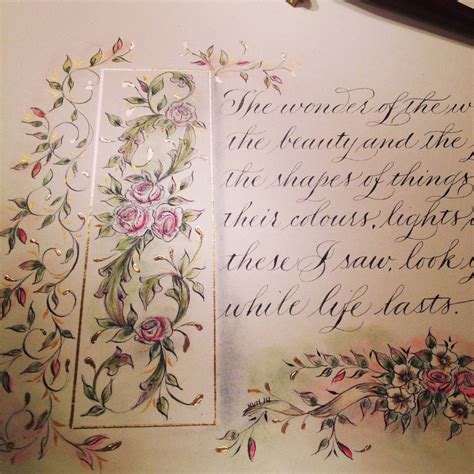 The wonder of the
the beauty and the
the shapes of things
their colours, lights
these I saw, look
while life lasts.